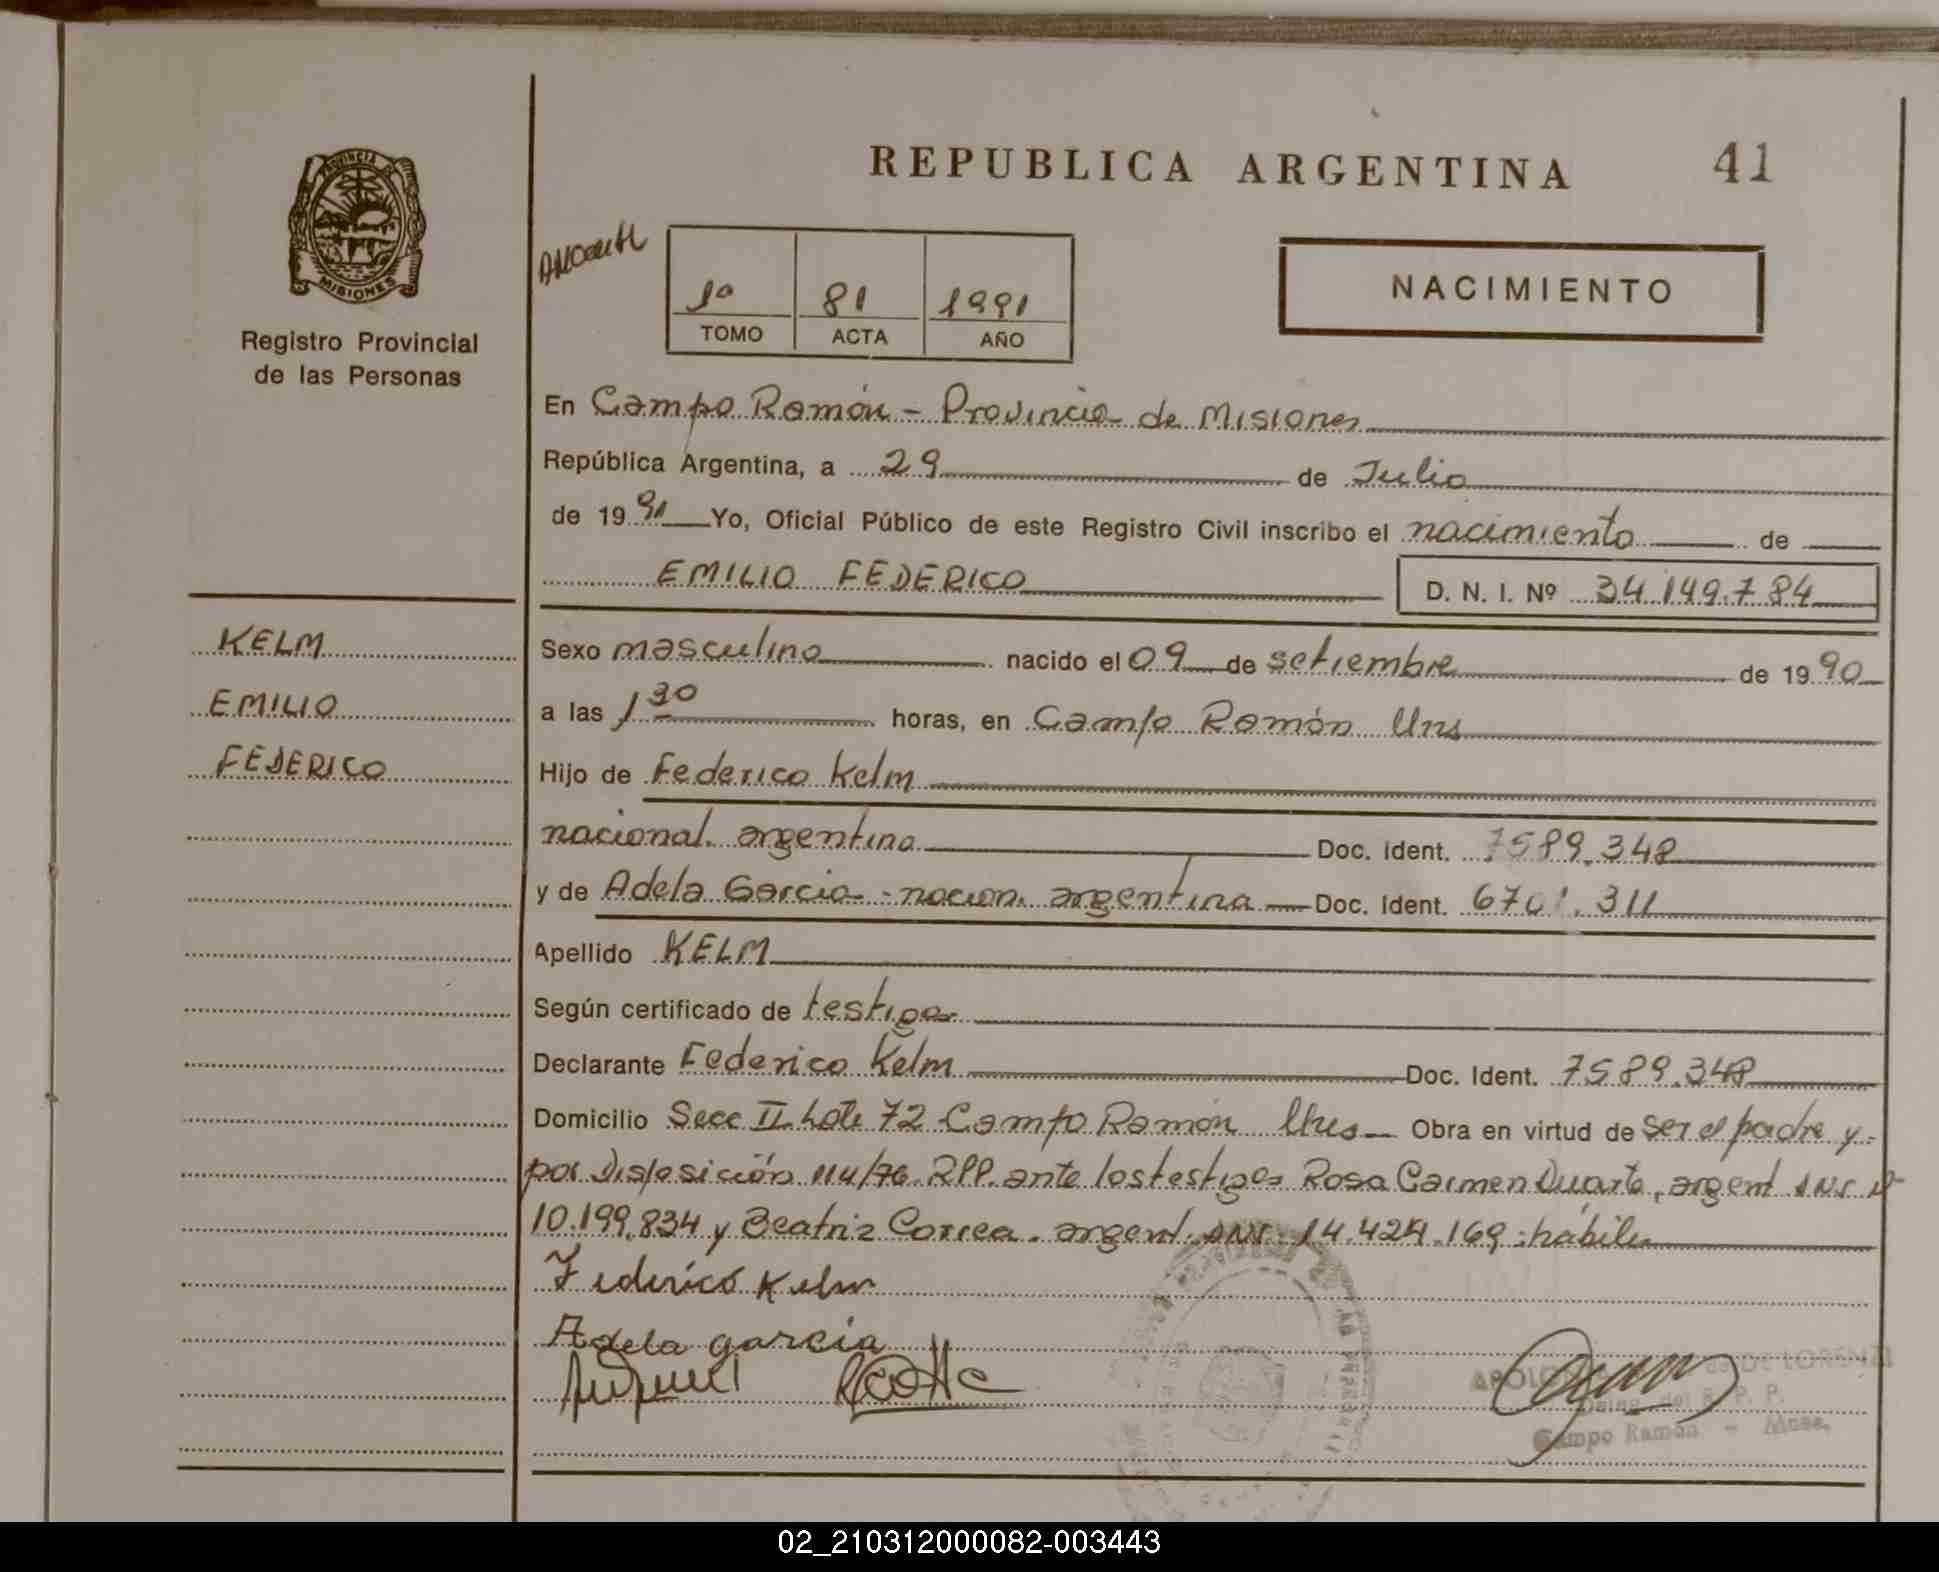 REPUBLICA ARGENTINA
41
PROVINCIA DE
MISIONES
Registro Provincial
de las Personas
1º 81 1991
TOMO ACTA AÑO
NACIMIENTO
En Campo Ramón - Provincia de Misiones
República Argentina, a 29 de Julio
de 19 91 Yo, Oficial Público de este Registro Civil inscribo el nacimiento de
EMILIO FEDERICO D. N. I. Nº 34.149.784
KELM
EMILIO
FEDERICO
Sexo masculino nacido el 09 de setiembre de 19 90
a las 1 30 horas, en Campo Ramón
Hijo de Federico Kelm
nacional. argentina Doc. Ident. 7589.348
y de Adela Garcia - nacion. argentina Doc. Ident. 6701.311
Apellido KELM
Según certificado de testigos
Declarante Federico Kelm Doc. Ident. 7589.348
Domicilio Secc II Lote 72 Campo Ramón Obra en virtud de ser el padre y
por Disposición 114/76 RPP. ante los testigos Rosa Carmen Duarte, argent
10.199.834 y Beatriz Correa. argent. 14.424.169 hábiles
Federico Kelm
Adela garcía
de DE LORENZI
Deleg. del R. P. P.
Campo Ramón - Mnes.
02_210312000082-003443